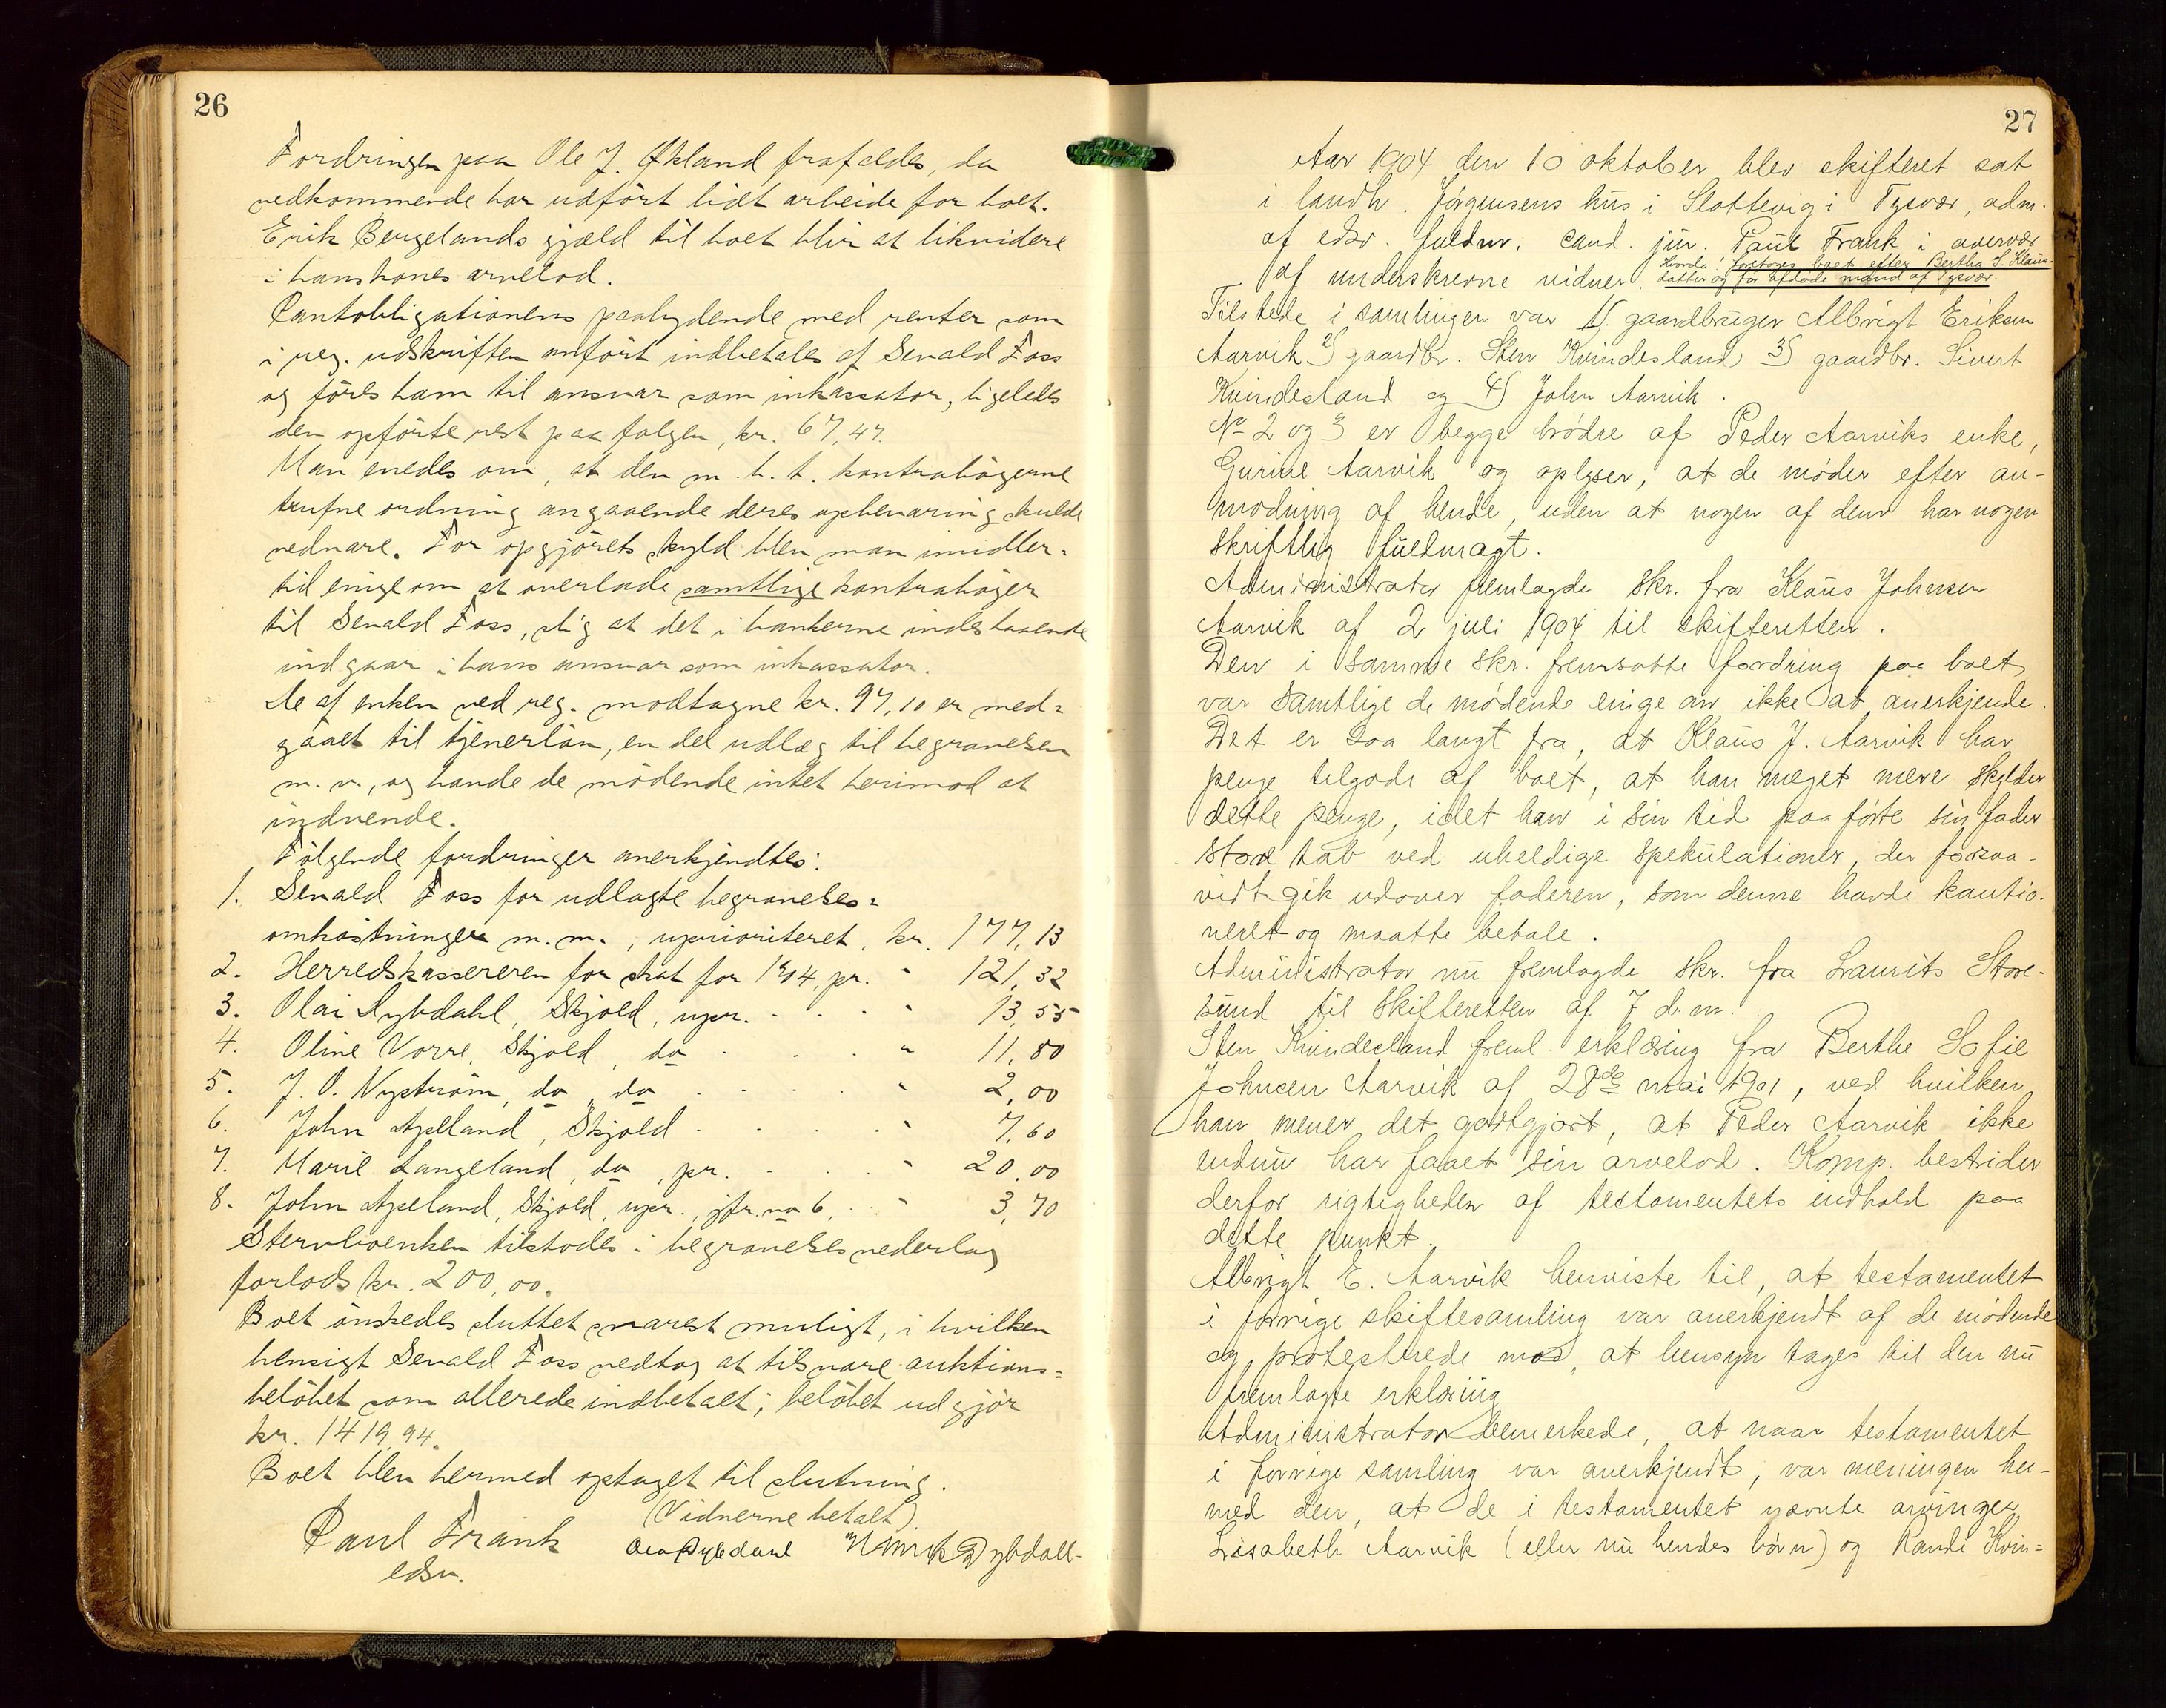 26
Fordringen paa Ole J. Økland frafaldes, da
vedkommende har udført lidt arbeide for boet.
Erik Bergelands gjæld til boet blir at likvidere
i hans kones arvelod.
Pantobligationens paalydende med renter som
i reg. udskriften anført indbetales af Sevald Foss
og føres ham til ansvar som inkassator, ligeledes
den opførte rest paa følgen, kr. 67,47.
Man enedes om, at den m. h. t. kontrabøgerne
trufne ordning angaaende deres opbevaring skulde
vedvare. For opgjørets skyld blev man imidler-
tid enige om at overlade samtlige kontrabøger
til Sevald Foss, slig at det i bankerne indestaaende
indgaar i hans ansvar som inkassator.
De af enken ved reg. modtagne kr. 97,10 er med-
gaaet til tjenerløn, en del udlæg til begravelsen
m. v., og havde de mødende intet herimod at
indvende.
Følgende fordringer anerkjendtes:
1. Sevald Foss for udlagte begravelses-
omkostninger m. m., uprioriteret, kr. 177,13
2. Herredskassereren for skat for 1904, pr. " 121,32
3. Olai Dybdahl, Skjold, upr. . . . " 13,55
4. Oline Vorre, Skjold, do . . . " 11,80
5. J. O. Nystrøm, do, do . . . " 2,00
6. John Apeland, Skjold . . . " 7,60
7. Marie Langeland, do, pr. . . . " 20,00
8. John Apeland, Skjold, upr., jfr. no 6, . " 3,70
Stervboenken tilstodes i begravelsesvederlag
forlods kr. 200,00.
Boet ønskedes sluttet snarest muligt, i hvilken
hensigt Sevald Foss vedtog at tilsvare auktions-
beløbet som allerede indbetalt; beløbet udgjør
kr. 1419,94.
Boet blev hermed optaget til slutning.
(Vidnerne betalt)
Paul Frank Dybdahl Dybdall.
edsv.
27
Aar 1904 den 10 oktober blev skifteret sat
i landh. Jørgensens hus i Slottevig i Tysvær, adm.
af edsv. fuldm. cand. jur. Paul Frank i overvær
af underskrevne vidner. Hvorda: foretoges boet efter Bertha S. Klaus-
datter og før afdøde mand af Tysvær.
Tilstede i samlingen var 1) gaardbruger Albrigt Eriksen
Aarvik 2) gaardbr. Sten Kvindesland 3) gaardbr. Sivert
Kvindesland og 4) John Aarvik.
No 2 og 3 er begge brødre af Peder Aarviks enke,
Gurine Aarvik og oplyser, at de møder efter an-
modning af hende, uden at nogen af dem har nogen
skriftlig fuldmagt.
Administrator fremlagde skr. fra Klaus Johnsen
Aarvik af 2 juli 1904 til skifteretten.
Den i samme skr. fremsatte fordring paa boet
var samtlige de mødende enige om ikke at anerkjende.
Det er saa langt fra, at Klaus J. Aarvik har
penge tilgode af boet, at han meget mere skylder
dette penge, idet han i sin tid paaførte sin fader
store tab ved uheldige spekulationer, der forsaa-
vidt gik udover faderen, som denne havde kautio-
neret og maatte betale.
Administrator nu fremlagde skr. fra Laurits Store-
sund til skifteretten af 7 d. m.
Sten Kvindesland freml. erklæring fra Berthe Sofie
Johnsen Aarvik af 28de mai 1901, ved hvilken
han mener det godtgjort, at Peder Aarvik ikke
endnu har faaet sin arvelod. Komp. bestrider
derfor rigtigheden af testamentets indhold paa
dette punkt.
Albrigt E. Aarvik henviste til, at testamentet
i forrige skiftesamling var anerkjendt af de mødende
og protesterede mod, at hensyn tages til den nu
fremlagte erklæring
Administrator bemerkede, at naar testamentet
i forrige samling var anerkjendt, var meningen her-
med den, at de i testamentet nævnte arvinger
Lisabeth Aarvik (eller nu hendes børn) og Randi Kvin-